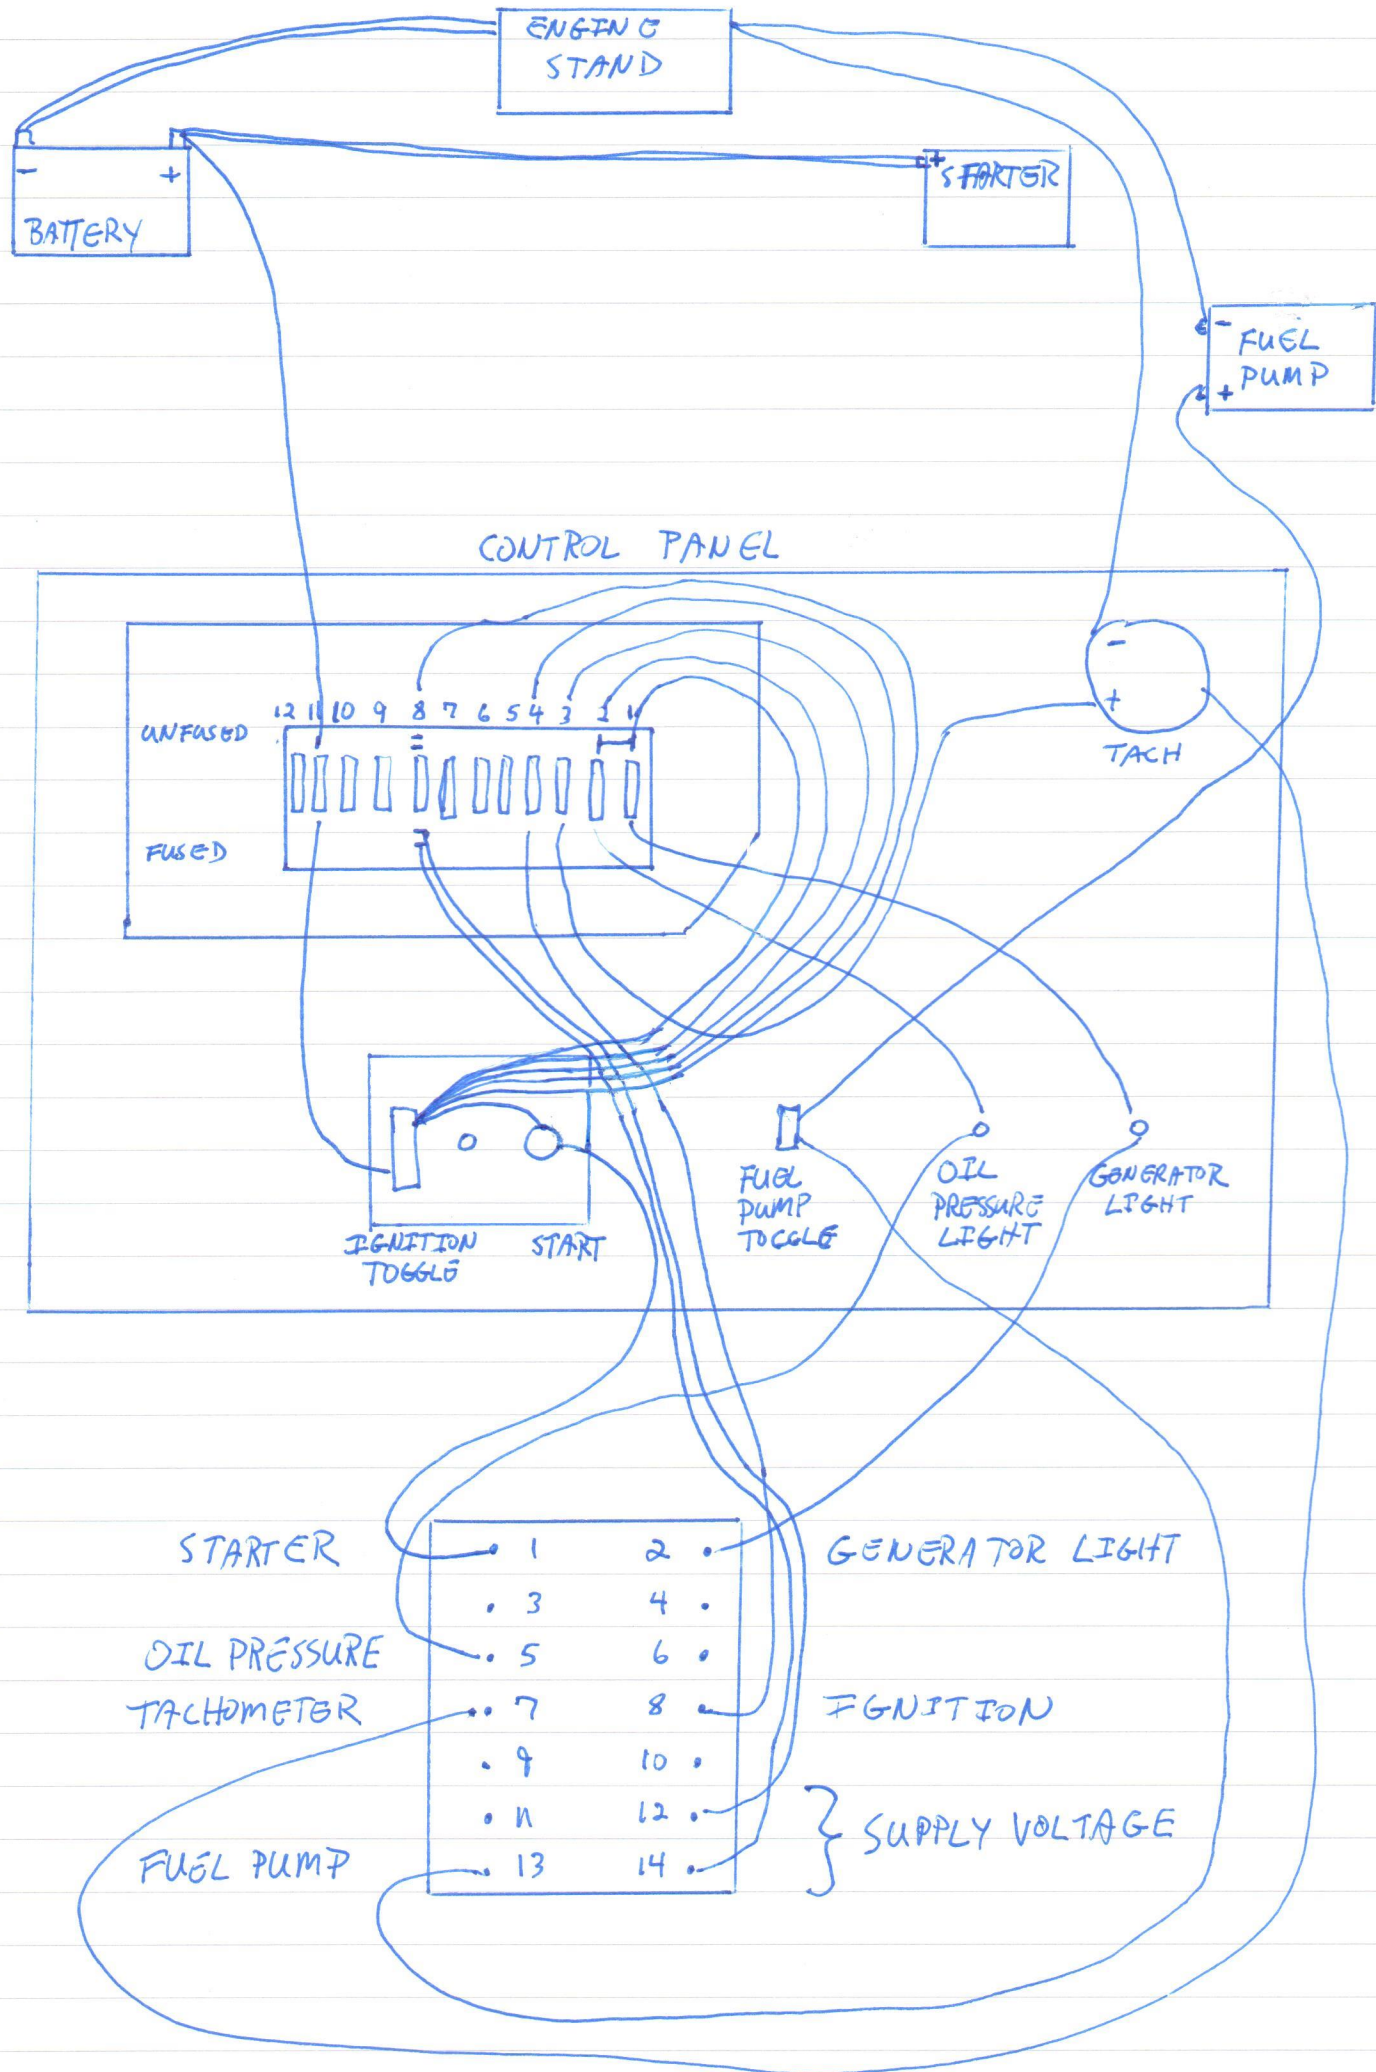 ENGINE
STAND
- +
BATTERY
+
STARTER
- FUEL
+ PUMP
CONTROL PANEL
-
+
TACH
12 11 10 9 8 7 6 5 4 3 2 1
UNFUSED
FUSED
IGNITION
TOGGLE
START
FUEL
PUMP
TOGGLE
OIL
PRESSURE
LIGHT
GENERATOR
LIGHT
STARTER 1 2 GENERATOR LIGHT
3 4
OIL PRESSURE 5 6
TACHOMETER 7 8 IGNITION
9 10
11 12
SUPPLY VOLTAGE
FUEL PUMP 13 14